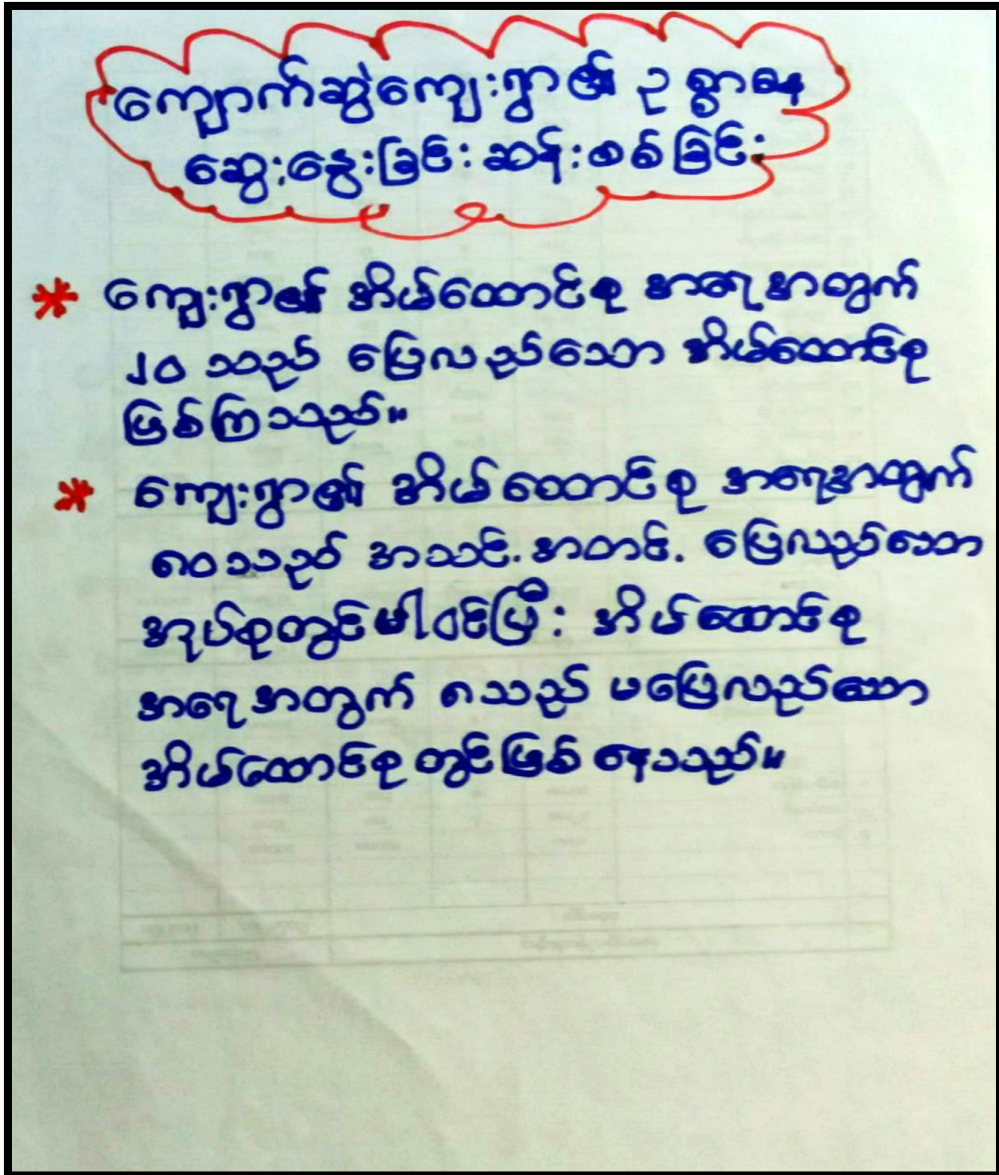 ကျောက်ဆွဲကျေးရွာ၏ ဥစ္စာဓန
ဆွေးနွေးခြင်း ဆန်းစစ်ခြင်း
* ကျေးရွာ၏ အိမ်ထောင်စု အရေအတွက်
၂၀ သည် ပြေလည်သော အိမ်ထောင်စု
ဖြစ်ကြသည်။
* ကျေးရွာ၏ အိမ်ထောင်စု အရေအတွက်
၈၀သည် အသင့်အတင့် ပြေလည်သော
အုပ်စုတွင်ပါဝင်ပြီး အိမ်ထောင်စု
အရေအတွက် ၈သည် မပြေလည်သော
အိမ်ထောင်စုတွင်ဖြစ်နေသည်။